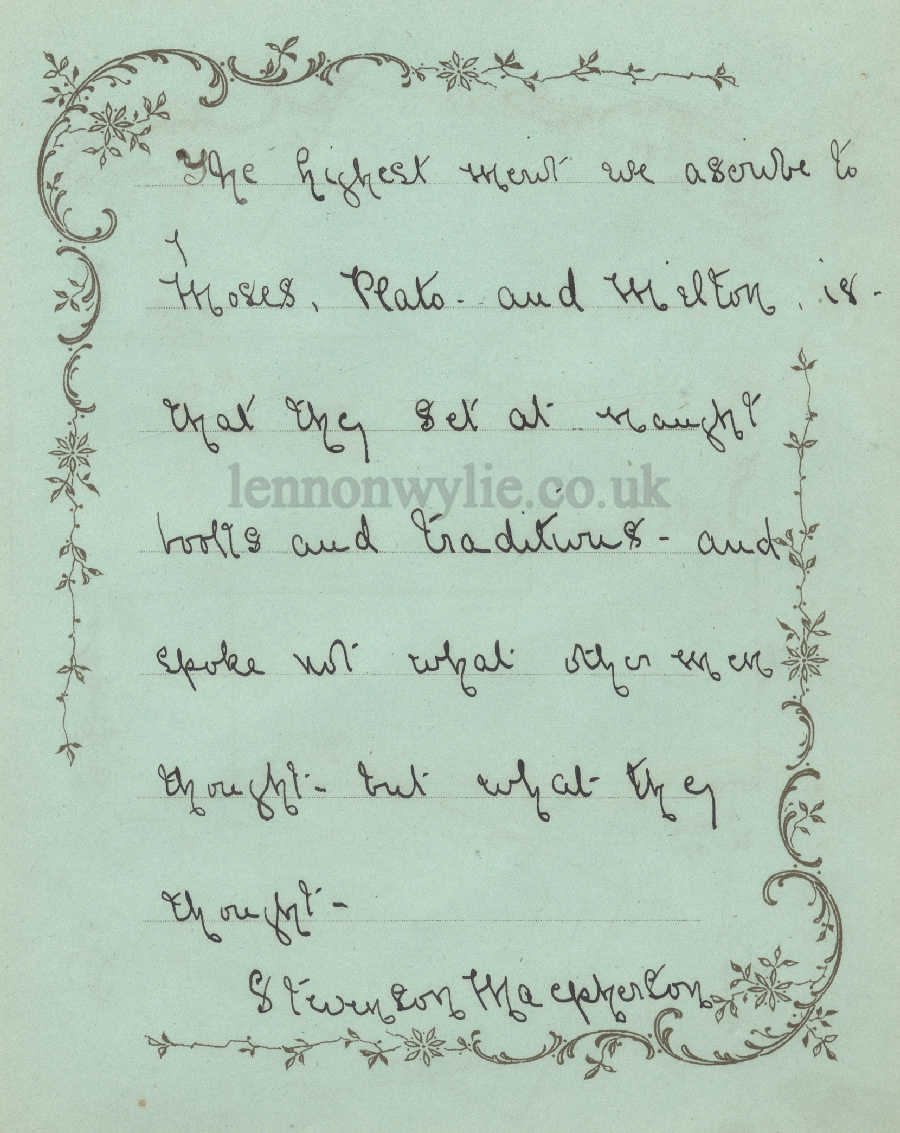 The highest merit we ascribe to
Moses, Plato - and Milton, is -
that they set at naught
lennonwylie.co.uk
books and traditions - and
spoke not what other men
thought - but what they
thought -
Stevenson Macpherson